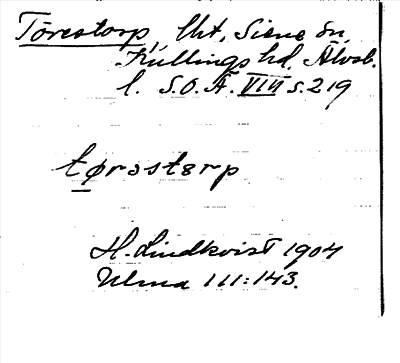 Törestorp, lht, Siene sn,
Kullings hd, Älvsb.
l. S.O.Ä. VIII s. 219
tørəstɛrp
H. Lindkvist 1904
Ulma 111:143.